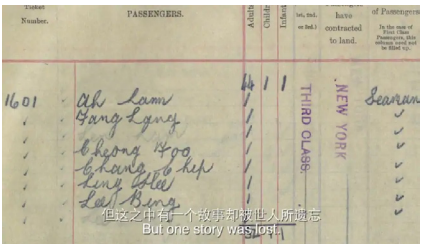 Ticket
Number.
PASSENGERS.
Adults
Children
Infants
1st, 2nd,
or 3rd.)
have
contracted
to land.
of Passengers
In the case of
First Class
Passengers, this
column need not
be filled up.
44 1 1
1601 Ah Lam 1 Seaman
Fang Lang 1
Cheong Foo 1
Chang Chip 1
Ling Hee 1
Lee Bing 1
THIRD CLASS.
NEW YORK
但这之中有一个故事却被世人所遗忘
But one story was lost.